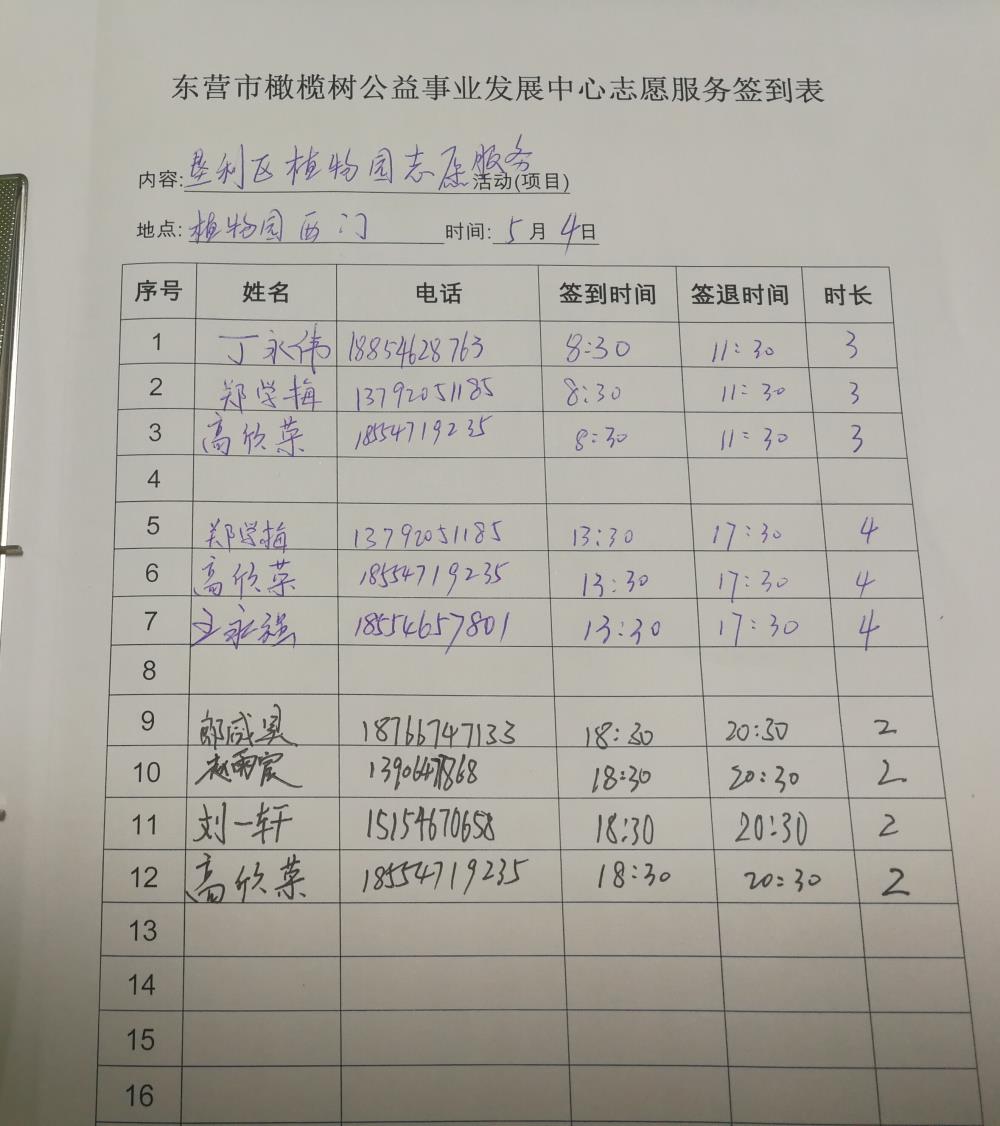 东营市橄榄树公益事业发展中心志愿服务签到表
内容:垦利区植物园志愿服务活动(项目)
地点:植物园西门 时间:5月4日
序号 姓名 电话 签到时间 签退时间 时长
1 丁永伟 18854628763 8:30 11:30 3
2 郑学梅 13792051185 8:30 11:30 3
3 高欣荣 18554719235 8:30 11:30 3
4
5 郑学梅 13792051185 13:30 17:30 4
6 高欣荣 18554719235 13:30 17:30 4
7 王永强 18554657801 13:30 17:30 4
8
9 郎咸昊 18766747133 18:30 20:30 2
10 赵雨宸 18:30 20:30 2
11 刘一轩 15154670658 18:30 20:30 2
12 高欣荣 18554719235 18:30 20:30 2
13
14
15
16